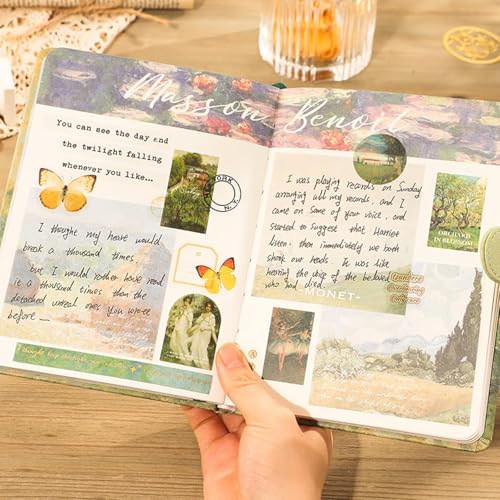 Masson Benoit
You can see the day and
the twilight falling
whenever you like...
YORK
N.Y.
I thought my heart would
break a thousand times.
but I would rather have read
it a thousand times than the
detached unreal ones you wrote
before
I was playing records on Sunday
arranging all my records, and I
came on some of your voice, and
started to suggest that Harriet
listen, then immediately we both
shook our heads. It was like
hearing the voice of the beloved
who had died.
-MONET-
ORCHARD
IN BLOSSOM